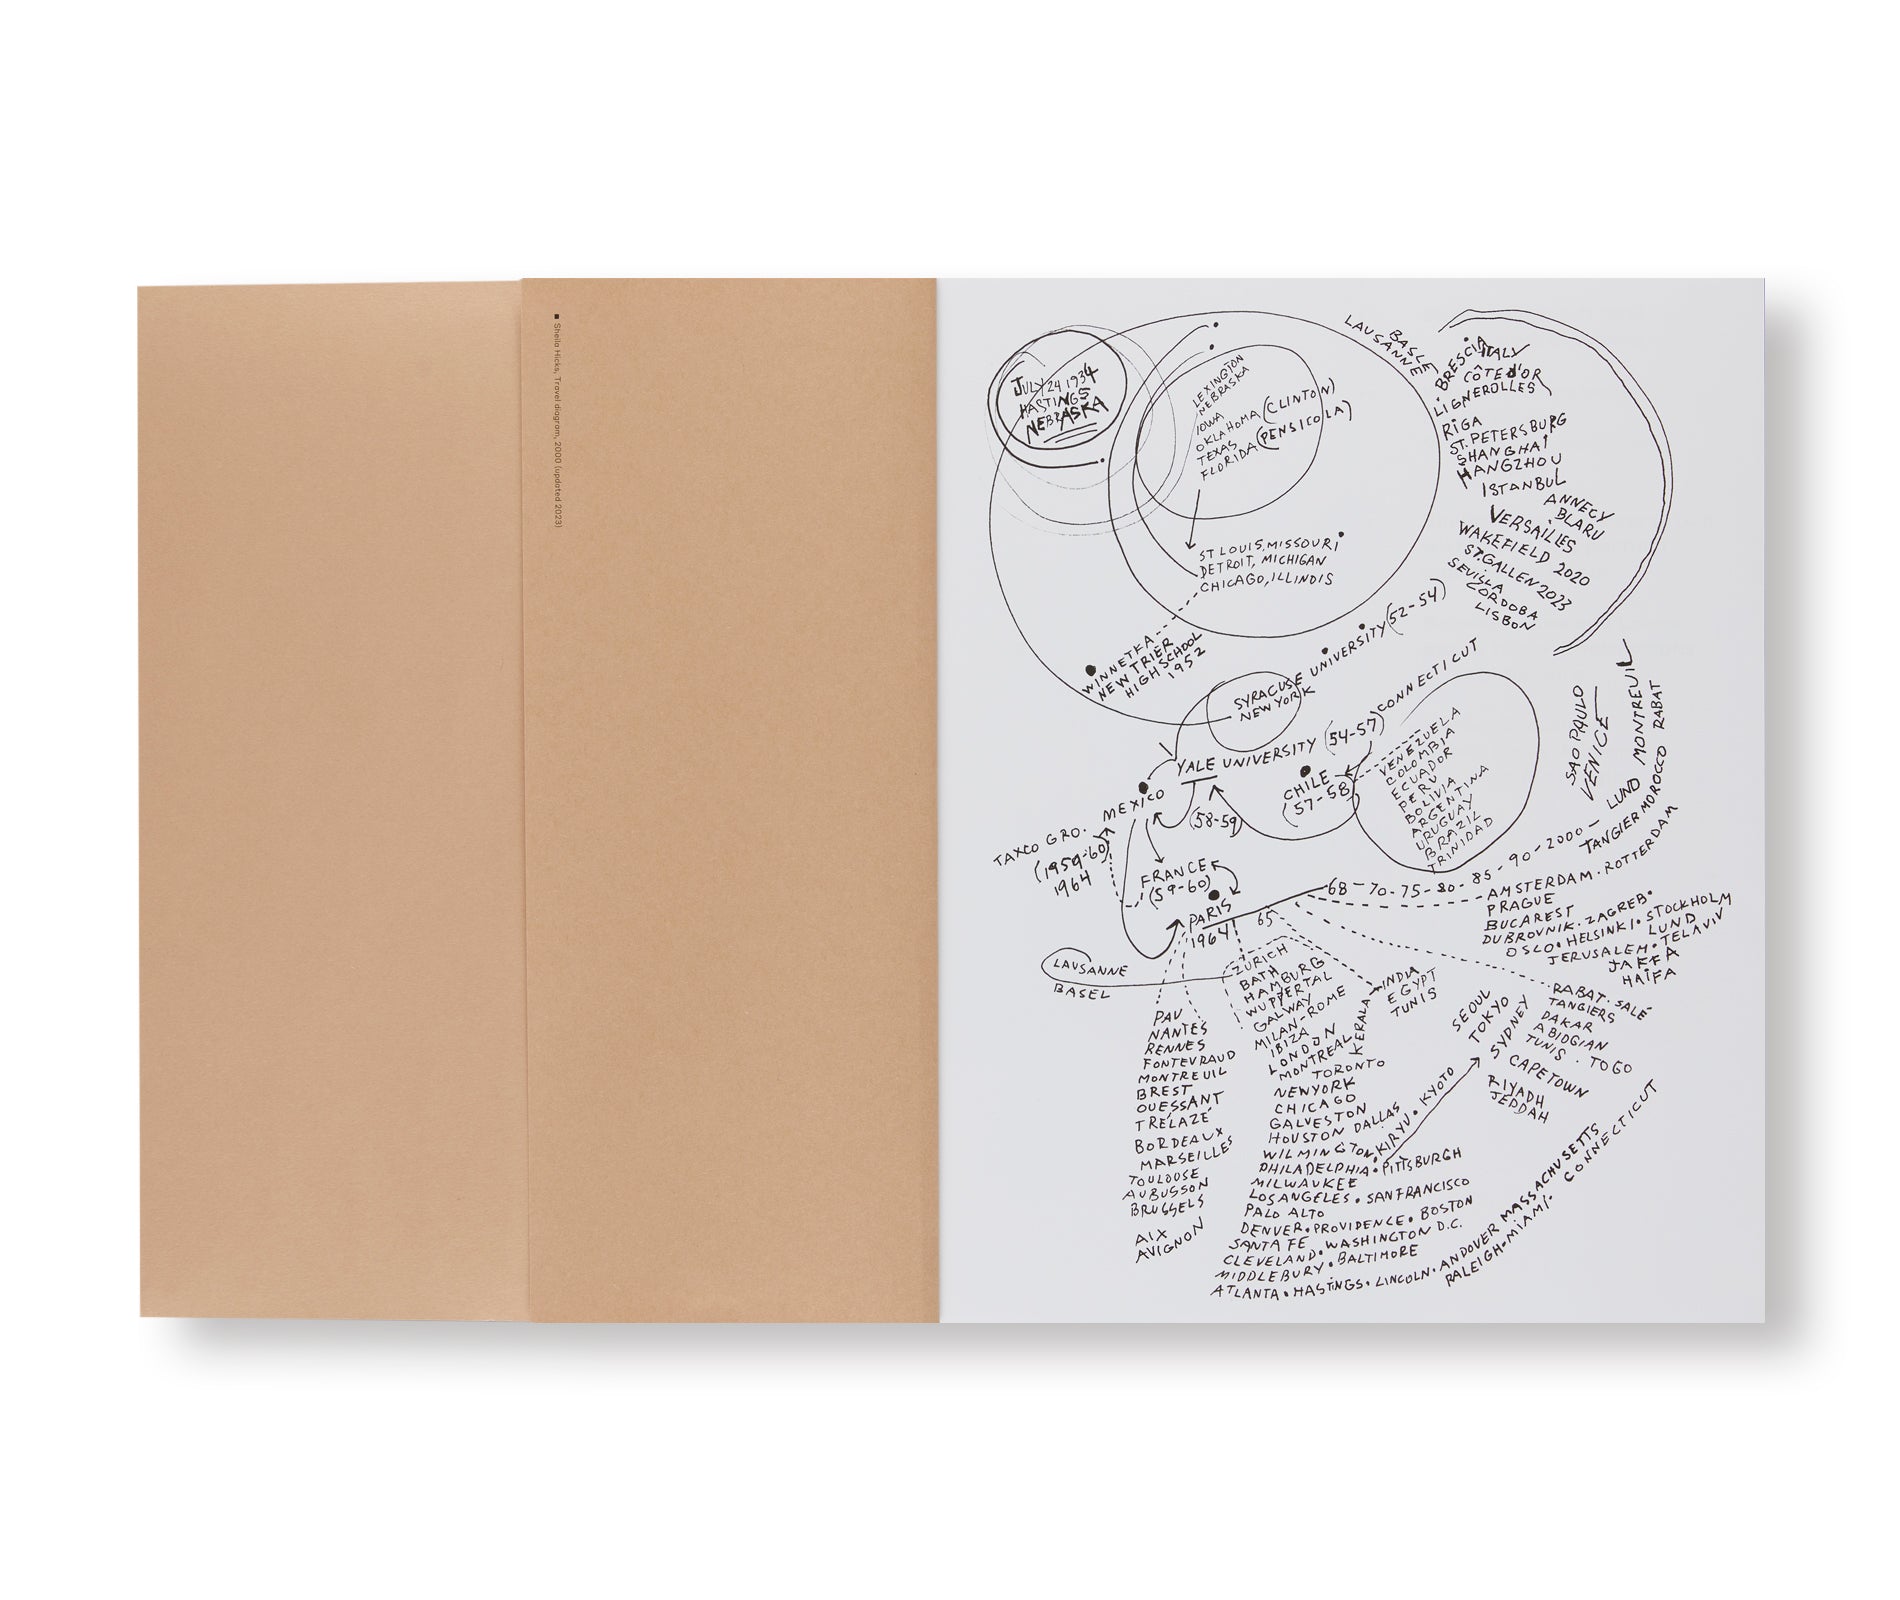 ■ Sheila Hicks, Travel diagram, 2000 (updated 2023)
JULY 24 1934
HASTINGS
NEBRASKA
LEXINGTON
NEBRASKA
IOWA
OKLAHOMA (CLINTON)
TEXAS
FLORIDA (PENSICOLA)
ST LOUIS, MISSOURI
DETROIT, MICHIGAN
CHICAGO, ILLINOIS
WINNETKA
NEW TRIER
HIGH SCHOOL
1952
BASLE
LAUSANNE
BRESCIA ITALY
CÔTE d'OR
LIGNEROLLES
RIGA
ST. PETERSBURG
SHANGHAI
HANGZHOU
ISTANBUL
ANNECY
BLARU
VERSAILLES
WAKEFIELD 2020
ST. GALLEN 2023
SEVILLA
CORDOBA
LISBON
SYRACUSE UNIVERSITY (52-54)
NEW YORK
YALE UNIVERSITY (54-57) CONNECTICUT
CHILE
(57-58)
VENEZUELA
COLOMBIA
ECUADOR
PERU
BOLIVIA
ARGENTINA
URUGUAY
BRAZIL
TRINIDAD
MEXICO
(58-59)
TAXCO GRO.
(1959-60)
1964
FRANCE
(59-60)
PARIS
1964
65
68-70-75-80-85-90-2000-
SAO PAULO
VENICE
LUND MONTREUIL
TANGIER MOROCCO RABAT
AMSTERDAM · ROTTERDAM
PRAGUE
BUCAREST
DUBROVNIK · ZAGREB ·
OSLO · HELSINKI · STOCKHOLM
LUND
JERUSALEM · TELAVIV
JAFFA
HAIFA
LAUSANNE
BASEL
PAU
NANTES
RENNES
FONTEVRAUD
MONTREUIL
BREST
OUESSANT
TRÉLAZÉ
BORDEAUX
MARSEILLES
TOULOUSE
AUBUSSON
BRUSSELS
AIX
AVIGNON
ZURICH
BATH
HAMBURG
WUPPERTAL
GALWAY
MILAN-ROME
IBIZA
LONDON
MONTREAL
TORONTO
NEWYORK
CHICAGO
GALVESTON
HOUSTON DALLAS
WILMINGTON · KIRYU · KYOTO
PHILADELPHIA · PITTSBURGH
MILWAUKEE
LOS ANGELES · SAN FRANCISCO
PALO ALTO
DENVER · PROVIDENCE · BOSTON
SANTA FE · WASHINGTON D.C.
CLEVELAND · BALTIMORE
MIDDLEBURY
ATLANTA · HASTINGS · LINCOLN · ANDOVER MASSACHUSETTS
RALEIGH · MIAMI · CONNECTICUT
KERALA
INDIA
EGYPT
TUNIS
SEOUL
TOKYO
SYDNEY
RABAT · SALÉ
TANGIERS
DAKAR
ABIDGIAN
TUNIS · TOGO
CAPETOWN
RIYADH
JEDDAH